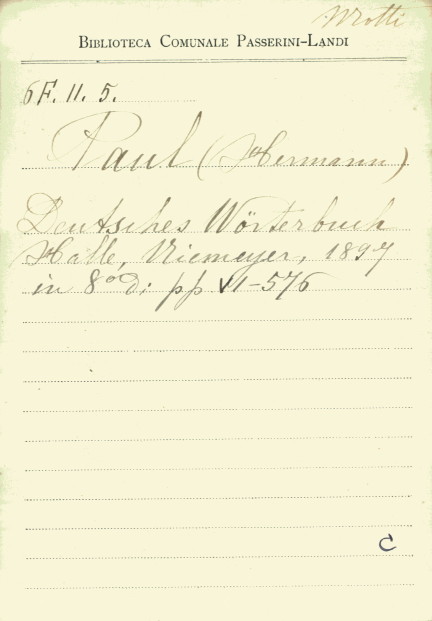 Motti
BIBLIOTECA COMUNALE PASSERINI-LANDI
6F. 11. 5.
Paul (Hermann)
Deutsches Wörterbuch
Halle, Niemeyer, 1897
in 8° d: pp VI-576
C